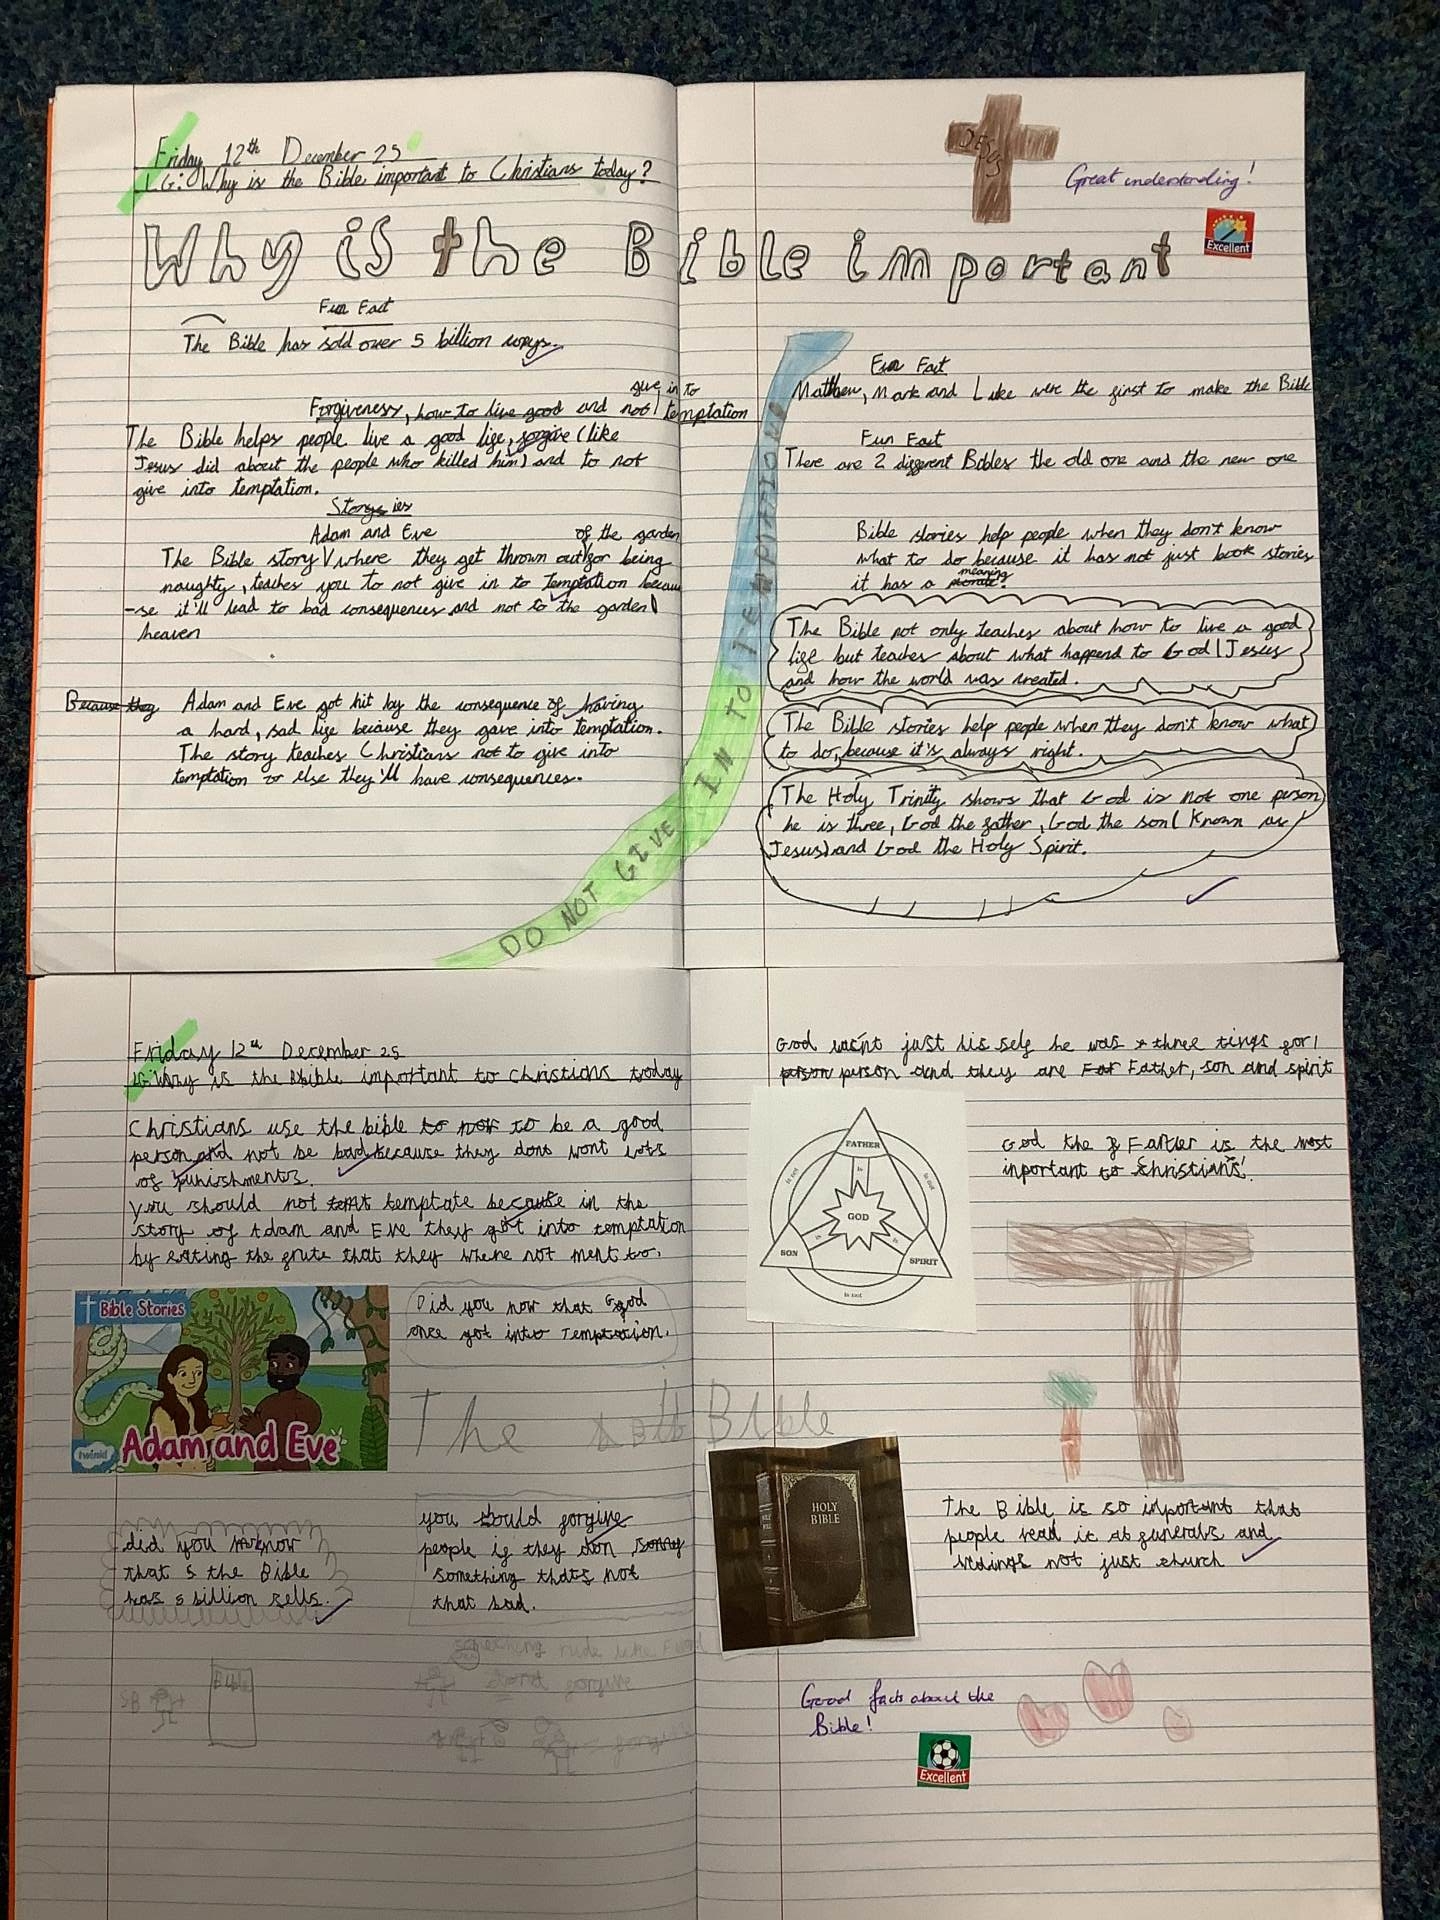 Friday 12th December 25
LG: Why is the Bible important to Christians today?
JESUS
Great understanding!
Excellent
Why is the Bible important
Fun Fact
The Bible has sold over 5 billion copys.
Forgiveness, how to live good and not give in to temptation
The Bible helps people live a good life, forgive (like
Jesus did about the people who killed him) and to not
give into temptation.
Storys ies
Adam and Eve of the garden
The Bible story V where they get thrown out for being
naughty, teaches you to not give in to temptation becau
-se it'll lead to bad consequences and not to the garden/
heaven
Because they Adam and Eve got hit by the consequence of having
a hard, sad life because they gave into temptation.
The story teaches Christians not to give into
temptation or else they'll have consequences.
DO NOT GIVE IN TO TEMPTATION
Fun Fact
Matthew, Mark and Luke were the first to make the Bible
Fun Fact
There are 2 different Bibles the old one and the new one
Bible stories help people when they don't know
what to do because it has not just book stories
it has a meaning.
The Bible not only teaches about how to live a good
life but teaches about what happend to God/Jesus
and how the world was created.
The Bible stories help people when they don't know what
to do, because it's always right.
The Holy Trinity shows that God is not one person
he is three, God the father, God the son (Known as
Jesus) and God the Holy Spirit.
Friday 12th December 25
LG Why is the Bible important to Christians today
Christians use the bible to now to be a good
person and not be bad because they dont wont lots
of punishments.
You should not temt temptate because in the
story of Adam and Eve they got into temptation
by eatting the frute that they where not ment to.
Bible Stories
twinkl
Adam and Eve
Did you now that God
once got into Temptation.
The Bible
did you know
that 5 the Bible
has 5 billion sells.
you sould forgive
people if they don sorry
something that's not
that bad.
something rude like F word
dond forgive
SB
Bible
God wasnt just his self he was 3 three tings for 1
person person and they are Father, son and spirit
FATHER
SON
SPIRIT
GOD
is
is
is
is not
is not
is not
God the Farther is the most
inportant to Christians!
HOLY
BIBLE
The Bible is so inportant that
people read it at funerals and
wedings not just church
Good facts about the
Bible!
Excellent